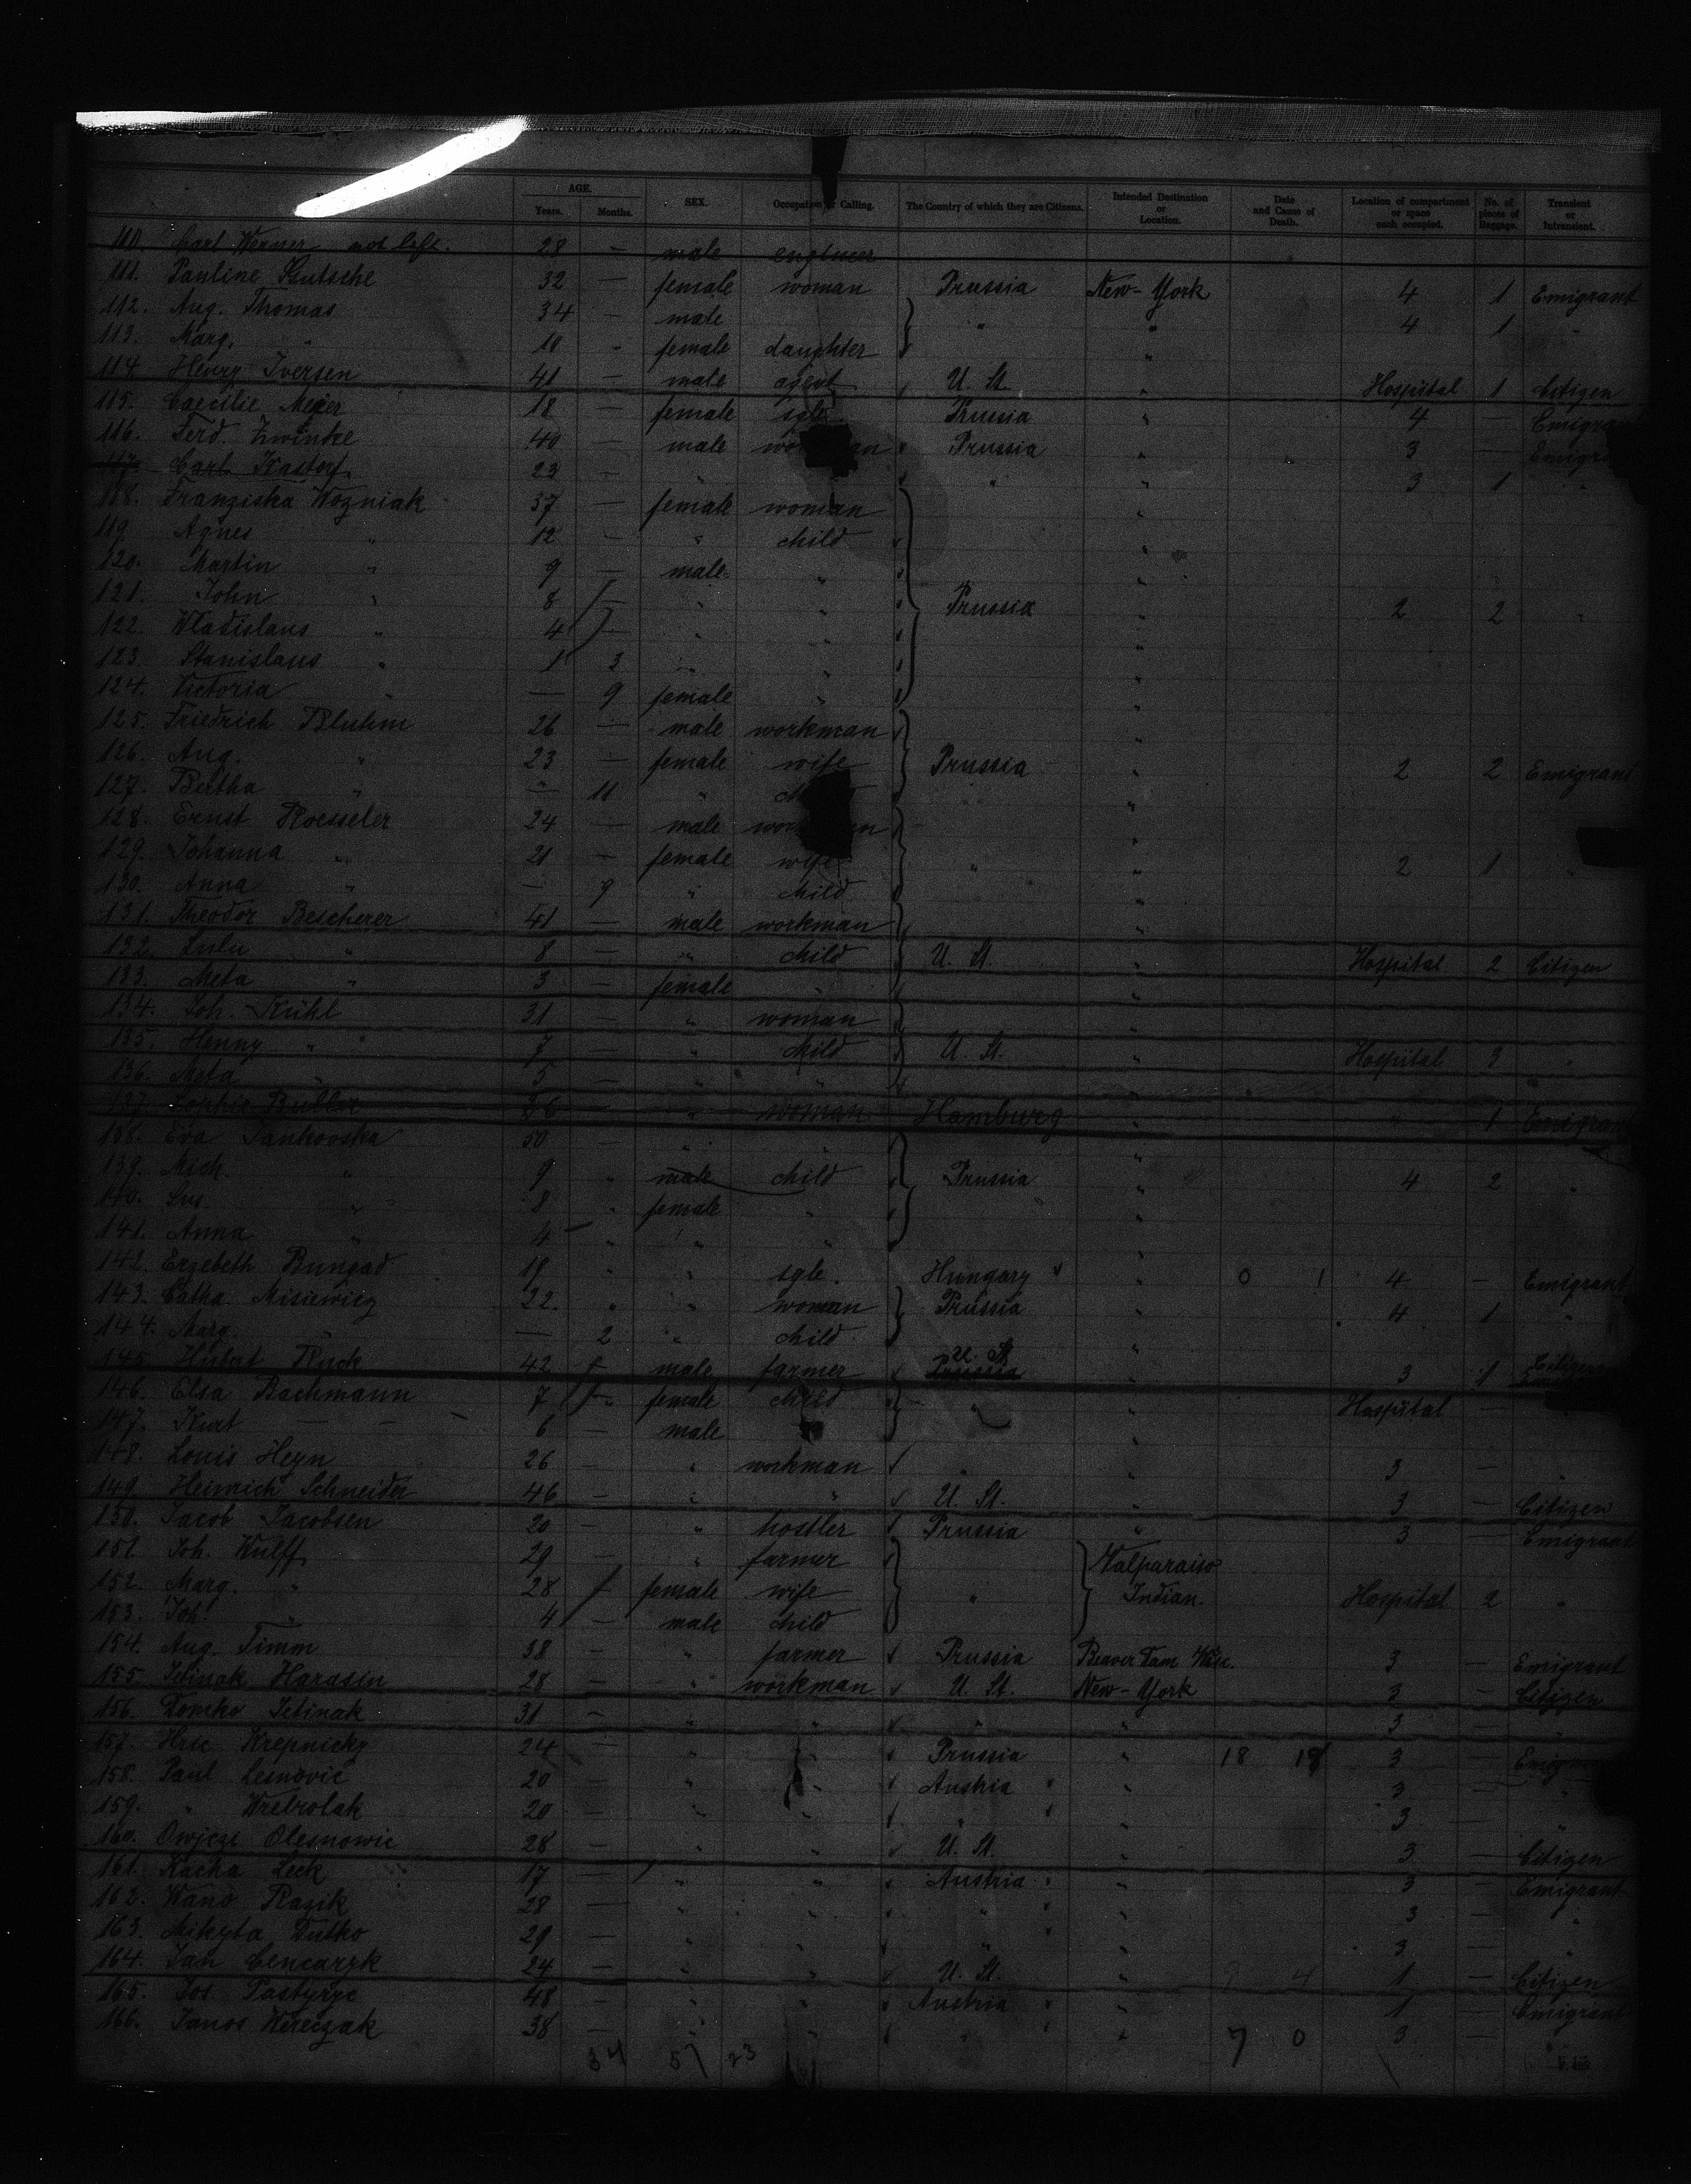 AGE. SEX. Occupation or Calling. The Country of which they are Citizens. Intended Destination or Location. Date and Cause of Death. Location of compartment or space each occupied. No. of pieces of Baggage. Transient or Intransient.
Years. Months.
110. Carl Werner not left. 28 — male engineer
111. Pauline 32 — female woman Prussia New-York 4 1 Emigrant
112. Aug. Thomas 34 — male " " 4 1 "
113. Marg. " 10 - female daughter "
114. Henry Iversen 41 — male agent U. St. " Hospital 1 Citizen
115. Caecilie Meier 18 — female sgle. Prussia " 4 — Emigrant
116. Ferd. Zwinke 40 — male Prussia " 3 —
117. Carl Kastorf 23 — " " " 3 1 "
118. Franziska Wozniak 37 — female woman "
119. Agnes " 12 — " child "
120. Martin " 9 — male " "
121. John " 8 — " " Prussia " 2 2 "
122. Wladislaus " 4 — " " "
123. Stanislaus " 1 3 " " "
124. Victoria " — 9 female " "
125. Friedrich Bluhm 26 — male workman "
126. Aug. " 23 — female wife Prussia " 2 2 Emigrant
127. Bertha " — 11 " "
128. Ernst Roesseler 24 — male "
129. Johanna " 21 — female wife " " 2 1 "
130. Anna " — 9 " child "
131. Theodor Bescherer 41 — male workman "
132. Lulu " 8 — " child U. St. " Hospital 2 Citizen
133. Meta " 3 — female " "
134. Joh. Kühl 31 — " woman "
135. Henny " 7 — " child U. St. " Hospital 3 "
136. Meta " 5 — " " "
137. Sophie 36 — " woman Hamburg " " 1 Emigrant
138. Eva Jankovska 50 — " " "
139. Mich. " 9 " male child Prussia " 4 2 "
140. Sus. " 8 " female " "
141. Anna " 4 " " " "
142. Erzebeth Bungad 19 " " sgle. Hungary " 0 1 4 — Emigrant
143. Catha. Misiewicz 22 " " woman Prussia " 4 1 "
144. Marg. " — 2 " child "
145. Ruck 42 — male farmer Prussia U. St. " 3 1 Citizen
146. Elsa Bachmann 7 — female child " " Hospital —
147. Kurt — — 6 — male "
148. Louis Heyn 26 — " workman " " 3 — "
149. Heinrich Schneider 46 — " " U. St. " 3 — Citizen
150. Jacob Jacobsen 20 — " hostler Prussia " 3 — Emigrant
151. Joh. Wulff 29 — " farmer Valparaiso
152. Marg. " 28 — female wife " Indian. Hospital 2 "
153. Joh. " 4 — male child
154. Aug. Timm 38 — " farmer Prussia Beaver Dam Wisc. 3 — Emigrant
155. Harasin 28 — " workman U. St. New-York 3 — Citizen
156. Tomko Jetinak 31 — " " " " 3 — "
157. Hric Krepnicky 24 — " " Prussia " 18 18 3 —
158. Paul Lesnovic 20 — " " Austria " 3 — "
159. " Wrebrolak 20 — " " " " 3 "
160. Olesnowic 28 — " " U. St. " 3 — Citizen
161. Kacha Leck 17 — " " Austria " 3 — Emigrant
162. Wano Razik 28 — " " " " 3 — "
163. Mikyta Dutko 29 — " " " " 3 — "
164. Jan Cencarzk 24 — " " U. St. " 4 1 — Citizen
165. Jos 48 — " " Austria " 1 — Emigrant
166. Janos Wereczak 38 — " " " " 7 0 3 —
34 51 23